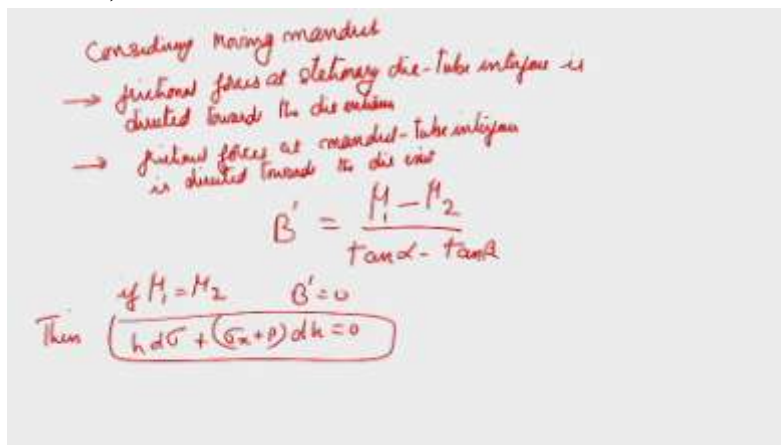 Considering moving mandrel
→ frictional forces at stationary die-tube interface is
directed towards the die entrance
→ frictional forces at mandrel-tube interface
is directed towards the die exit
B' = (μ₁ - μ₂) / (tanα - tanβ)
if μ₁ = μ₂ B' = 0
Then h dσ + (σx + p) dh = 0